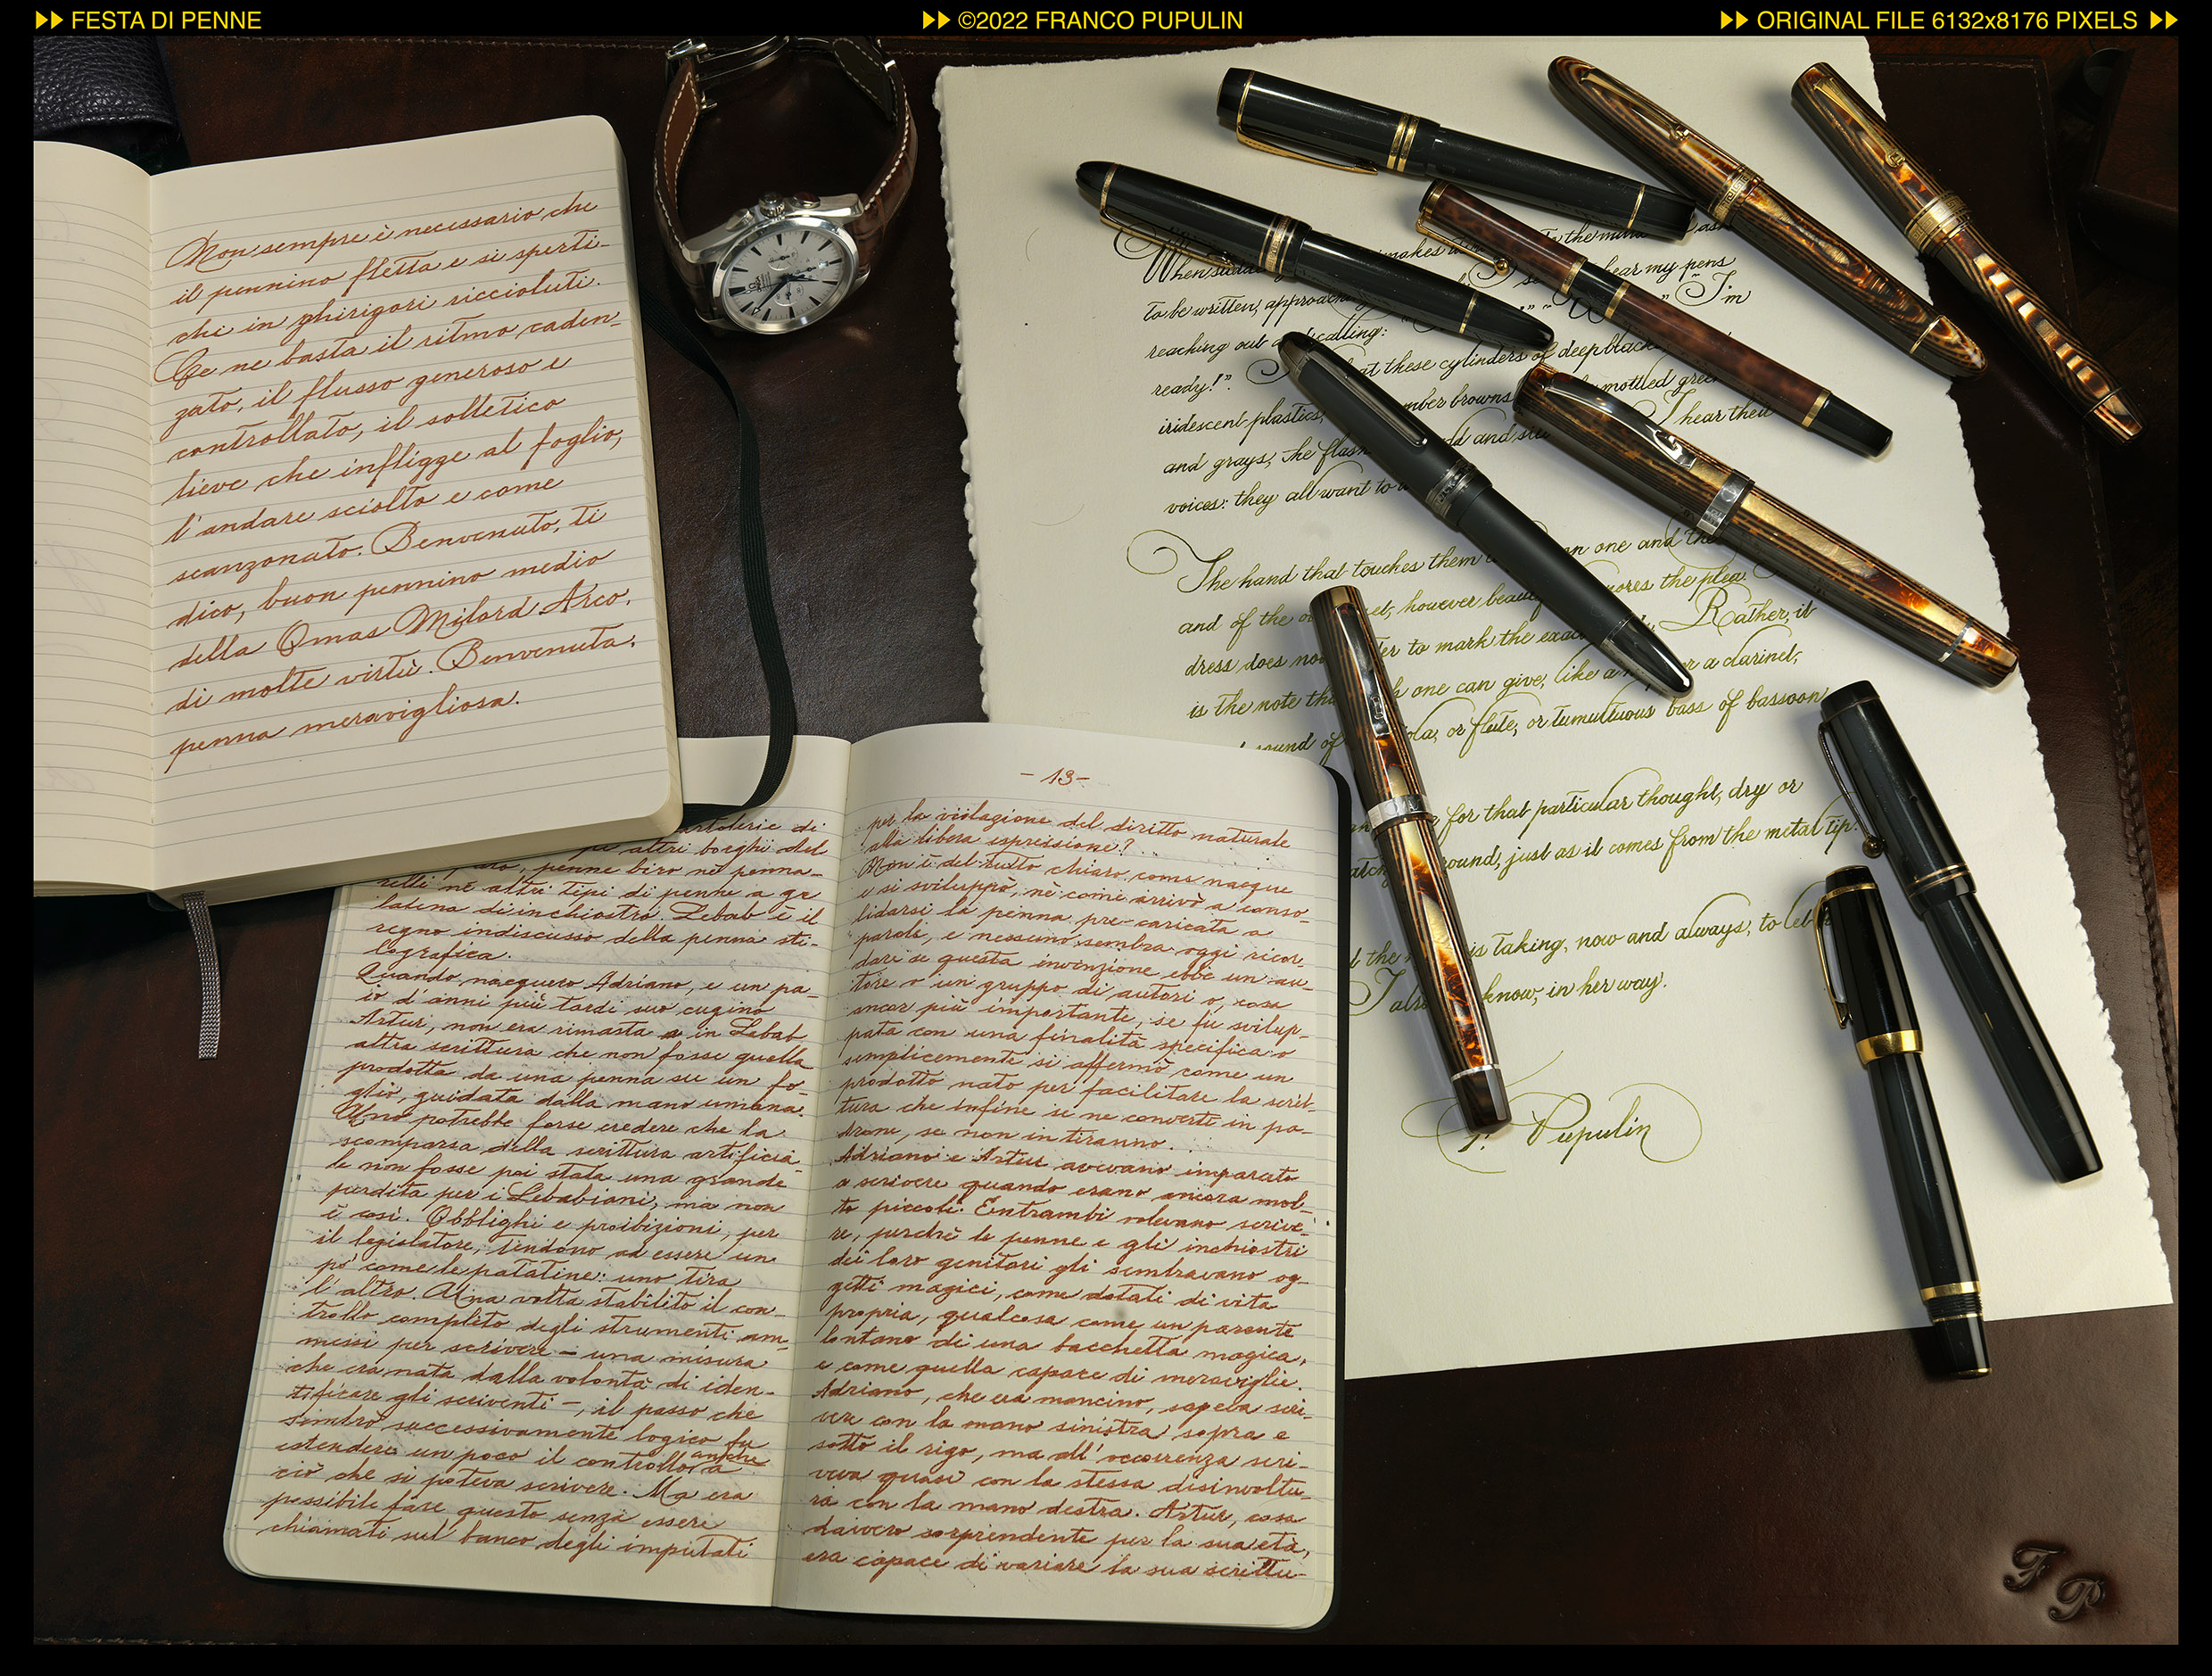 FESTA DI PENNE
©2022 FRANCO PUPULIN
ORIGINAL FILE 6132x8176 PIXELS
Non sempre è necessario che
il pennino fletta e si sperti-
chi in ghirigori riccioluti.
Ce ne basta il ritmo caden-
zato, il flusso generoso e
controllato, il solletico
lieve che infligge al foglio,
l'andare sciolto e come
scanzonato. Benvenuto, ti
dico, buon pennino medio
della Omas Milord Arco,
di molte virtù. Benvenuta,
penna meravigliosa.
di
altri borghi del
penne biro nè penna-
relli nè altri tipi di penne a ge
latina di inchiostro. Lebab è il
regno indiscusso della penna sti-
lografica.
Quando nacquero Adriano, e un pa-
io d'anni più tardi suo cugino
Artur, non era rimasta in Lebab
altra scrittura che non fosse quella
prodotta da una penna su un fo-
glio, guidata dalla mano umana.
Uno potrebbe forse credere che la
scomparsa della scrittura artificia-
le non fosse poi stata una grande
perdita per i Lebabiani, ma non
è così. Obblighi e proibizioni, per
il legislatore, tendono ad essere un
pò come le patatine: uno tira
l'altro. Una volta stabilito il con-
trollo completo degli strumenti am-
messi per scrivere – una misura
che era nata dalla volontà di iden-
tificare gli scriventi –, il passo che
sembrò successivamente logico fu
estendere un poco il controllo anche a
ciò che si poteva scrivere. Ma era
possibile fare questo senza essere
chiamati sul banco degli imputati
- 13 -
per la violazione del diritto naturale
alla libera espressione?
Non è del tutto chiaro come nacque
e si sviluppò, nè come arrivò a conso-
lidarsi la penna pre-caricata a
parole, e nessuno sembra oggi ricor-
dare se questa invenzione ebbe un au-
tore o un gruppo di autori o, cosa
ancor più importante, se fu svilup-
pata con una finalità specifica o
semplicemente si affermò come un
prodotto nato per facilitare la scrit-
tura che infine se ne convertì in pa-
drone, se non in tiranno.
Adriano e Artur avevano imparato
a scrivere quando erano ancora mol-
to piccoli. Entrambi volevano scrive-
re, perchè le penne e gli inchiostri
dei loro genitori gli sembravano og-
getti magici, come dotati di vita
propria, qualcosa come un parente
lontano di una bacchetta magica,
e come quella capace di meraviglie.
Adriano, che era mancino, sapeva scri-
vere con la mano sinistra sopra e
sotto il rigo, ma all'occorrenza scri-
veva quasi con la stessa disinvoltu-
ra con la mano destra. Artur, cosa
davvero sorprendente per la sua età,
era capace di variare la sua scrittu-
makes to the mind
When hear my pens
to be written, "I'm
reaching out calling:
ready!". at these cylinders of deep black
iridescent plastics, browns mottled
and grays, the I hear their
voices: they all want to
The hand that touches them one and the
and of the however the plea.
dress does to mark the Rather, it
is the note one can give, like a or a clarinet,
sound of or flute, or tumultuous bass of bassoon
for that particular thought, dry or
just as it comes from the metal tip.
the is taking, now and always, to let
I know, in her way.
F. Pupulin
F P